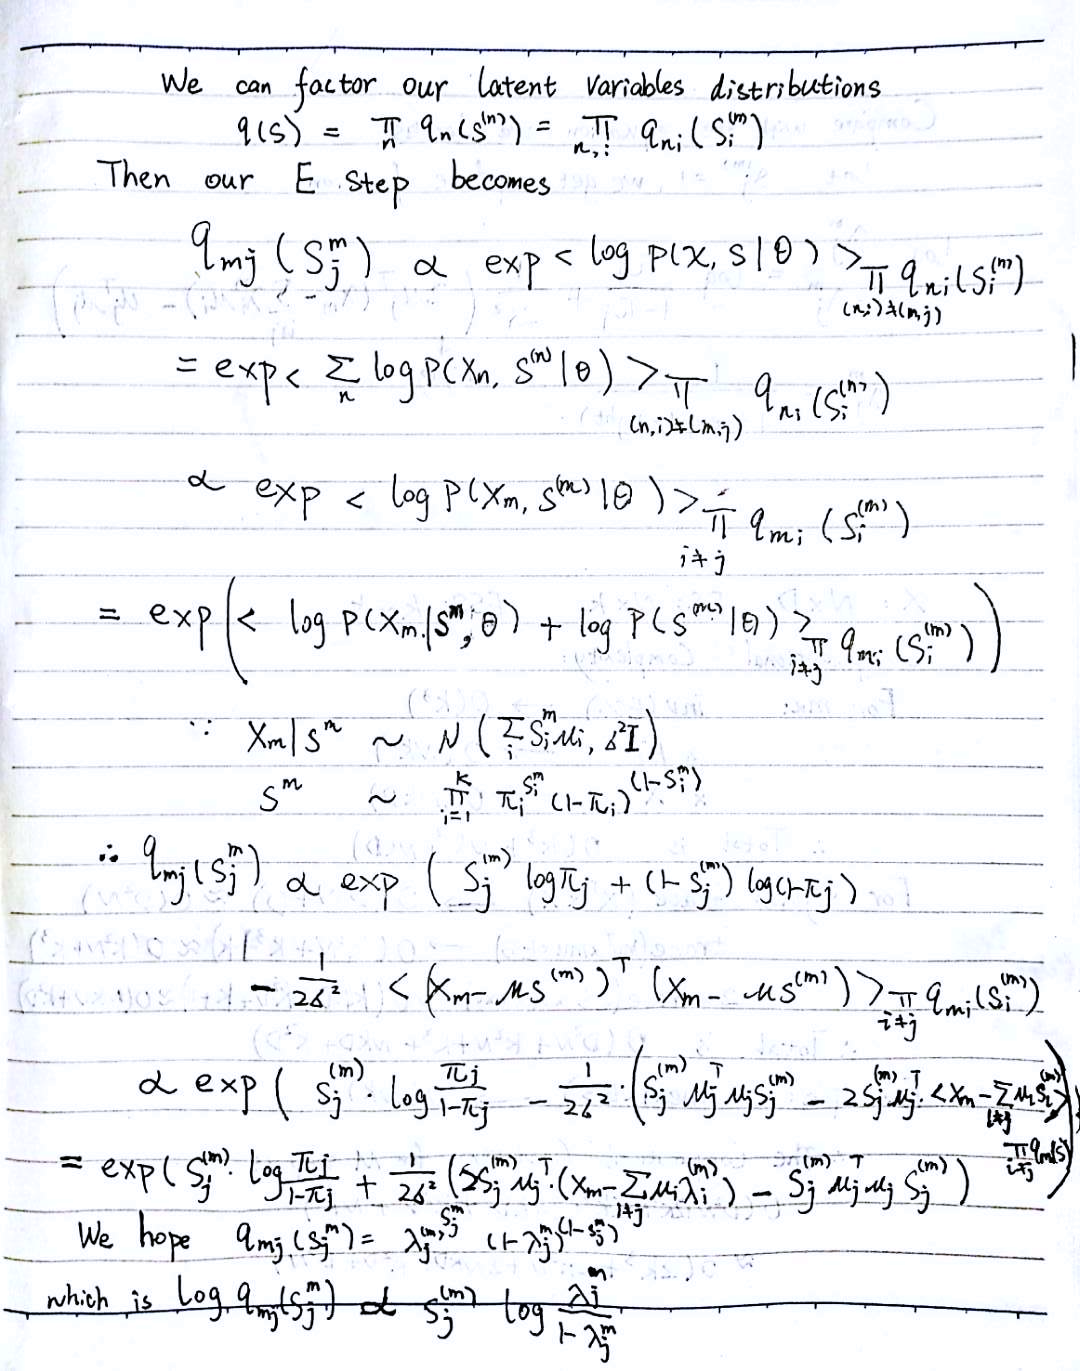 We can factor our latent variables distributions
q(s) = ∏_n q_n(s^{(n)}) = ∏_{n,i} q_{ni}(S_i^{(n)})
Then our E step becomes
q_{mj}(S_j^m) ∝ exp < log p(x, s|θ) >_{∏_{(n,i)≠(m,j)} q_{ni}(S_i^{(n)})}
= exp < Σ_n log P(x_n, S^{(n)}|θ) >_{∏_{(n,i)≠(m,j)} q_{ni}(S_i^{(n)})}
∝ exp < log P(x_m, S^{(m)}|θ) >_{∏_{i≠j} q_{mi}(S_i^{(m)})}
= exp(< log P(x_m|S^m, θ) + log P(S^{(m)}|θ) >_{∏_{i≠j} q_{mi}(S_i^{(m)})})
∵ x_m|s^m ~ N(Σ_i S_i^m μ_i, σ²I)
s^m ~ ∏_{i=1}^k π_i^{S_i^m} (1-π_i)^{(1-S_i^m)}
∴ q_{mj}(S_j^m) ∝ exp(S_j^{(m)} log π_j + (1-S_j^{(m)}) log(1-π_j)
- 1/2σ² <(x_m - μs^{(m)})^T (x_m - μs^{(m)})>_{∏_{i≠j} q_{mi}(S_i^{(m)})}
∝ exp(S_j^{(m)} · log π_j/1-π_j - 1/2σ² · (S_j^{(m)} μ_j^T μ_j S_j^{(m)} - 2S_j^{(m)} μ_j^T · <x_m - Σ_{i≠j} μ_i S_i^{(m)}>_{∏_{i≠j} q_{mi}(s)}))
= exp(S_j^{(m)} · log π_j/1-π_j + 1/2σ² (2S_j^{(m)} μ_j^T · (x_m - Σ_{i≠j} μ_i λ_i^{(m)}) - S_j^{(m)} μ_j^T μ_j S_j^{(m)})
We hope q_{mj}(S_j^m) = λ_j^{m, S_j^m} (1-λ_j^m)^{(1-S_j^m)}
which is log q_{mj}(S_j^m) ∝ S_j^{(m)} log λ_j^m/1-λ_j^m